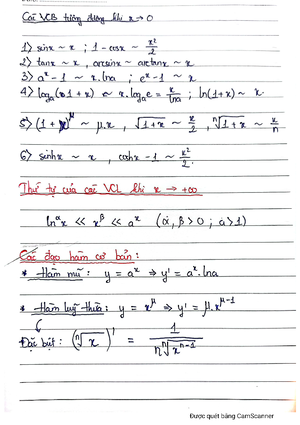 Các VCB tương đương khi x → 0
1> sinx ~ x ; 1 - cosx ~ x²/2
2> tanx ~ x , arcsinx ~ arctanx ~ x
3> aˣ - 1 ~ x.lna ; eˣ - 1 ~ x
4> logₐ(1 + x) ~ x.logₐe = x/lna ; ln(1+x) ~ x.
5> (1 + x)^μ ~ μ.x , √(1+x) ~ x/2 , ⁿ√(1+x) ~ x/n
6> sinhx ~ x , coshx - 1 ~ x²/2.
Thứ tự của các VCL khi x → +∞
ln^α x << x^β << aˣ (α, β > 0 ; a > 1)
Các đạo hàm cơ bản:
* Hàm mũ: y = aˣ ⇒ y' = aˣ.lna
* Hàm luỹ thừa: y = x^μ ⇒ y' = μ.x^(μ-1)
Đặc biệt: (ⁿ√x)' = 1/(n ⁿ√(xⁿ⁻¹))
Được quét bằng CamScanner